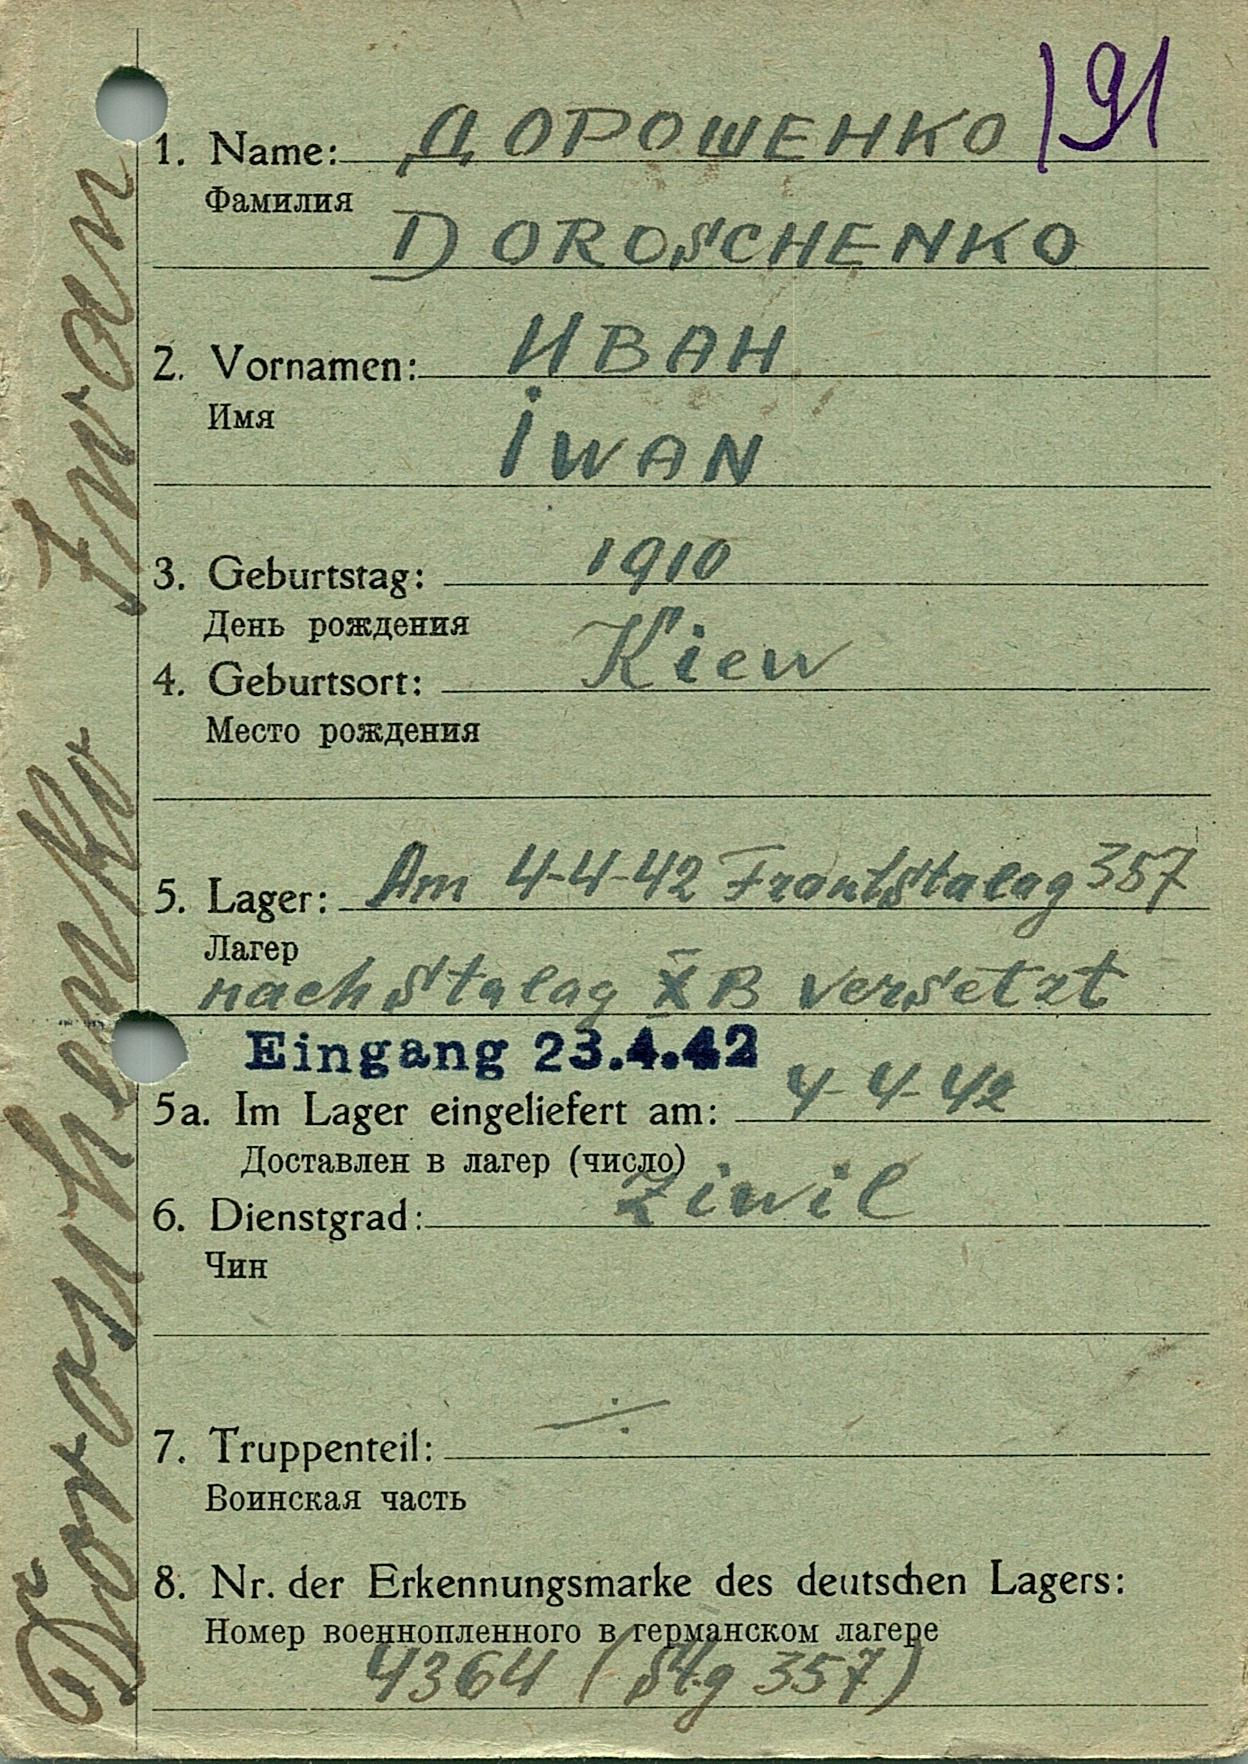 191
1. Name: ДОРОШЕНКО
Фамилия
DOROSCHENKO
2. Vornamen: ИВАН
Имя
İWAN
3. Geburtstag: 1910
День рождения
4. Geburtsort: Kiew
Место рождения
5. Lager: Am 4-4-42 Frontstalag 357
Лагер
nach Stalag XB versetzt
Eingang 23.4.42
5a. Im Lager eingeliefert am: 4-4-42
Доставлен в лагер (число)
6. Dienstgrad: Ziwil
Чин
7. Truppenteil: ÷
Воинская часть
8. Nr. der Erkennungsmarke des deutschen Lagers:
Номер военнопленного в германском лагере
4364 (Stlg 357)
Doroschenko Iwan